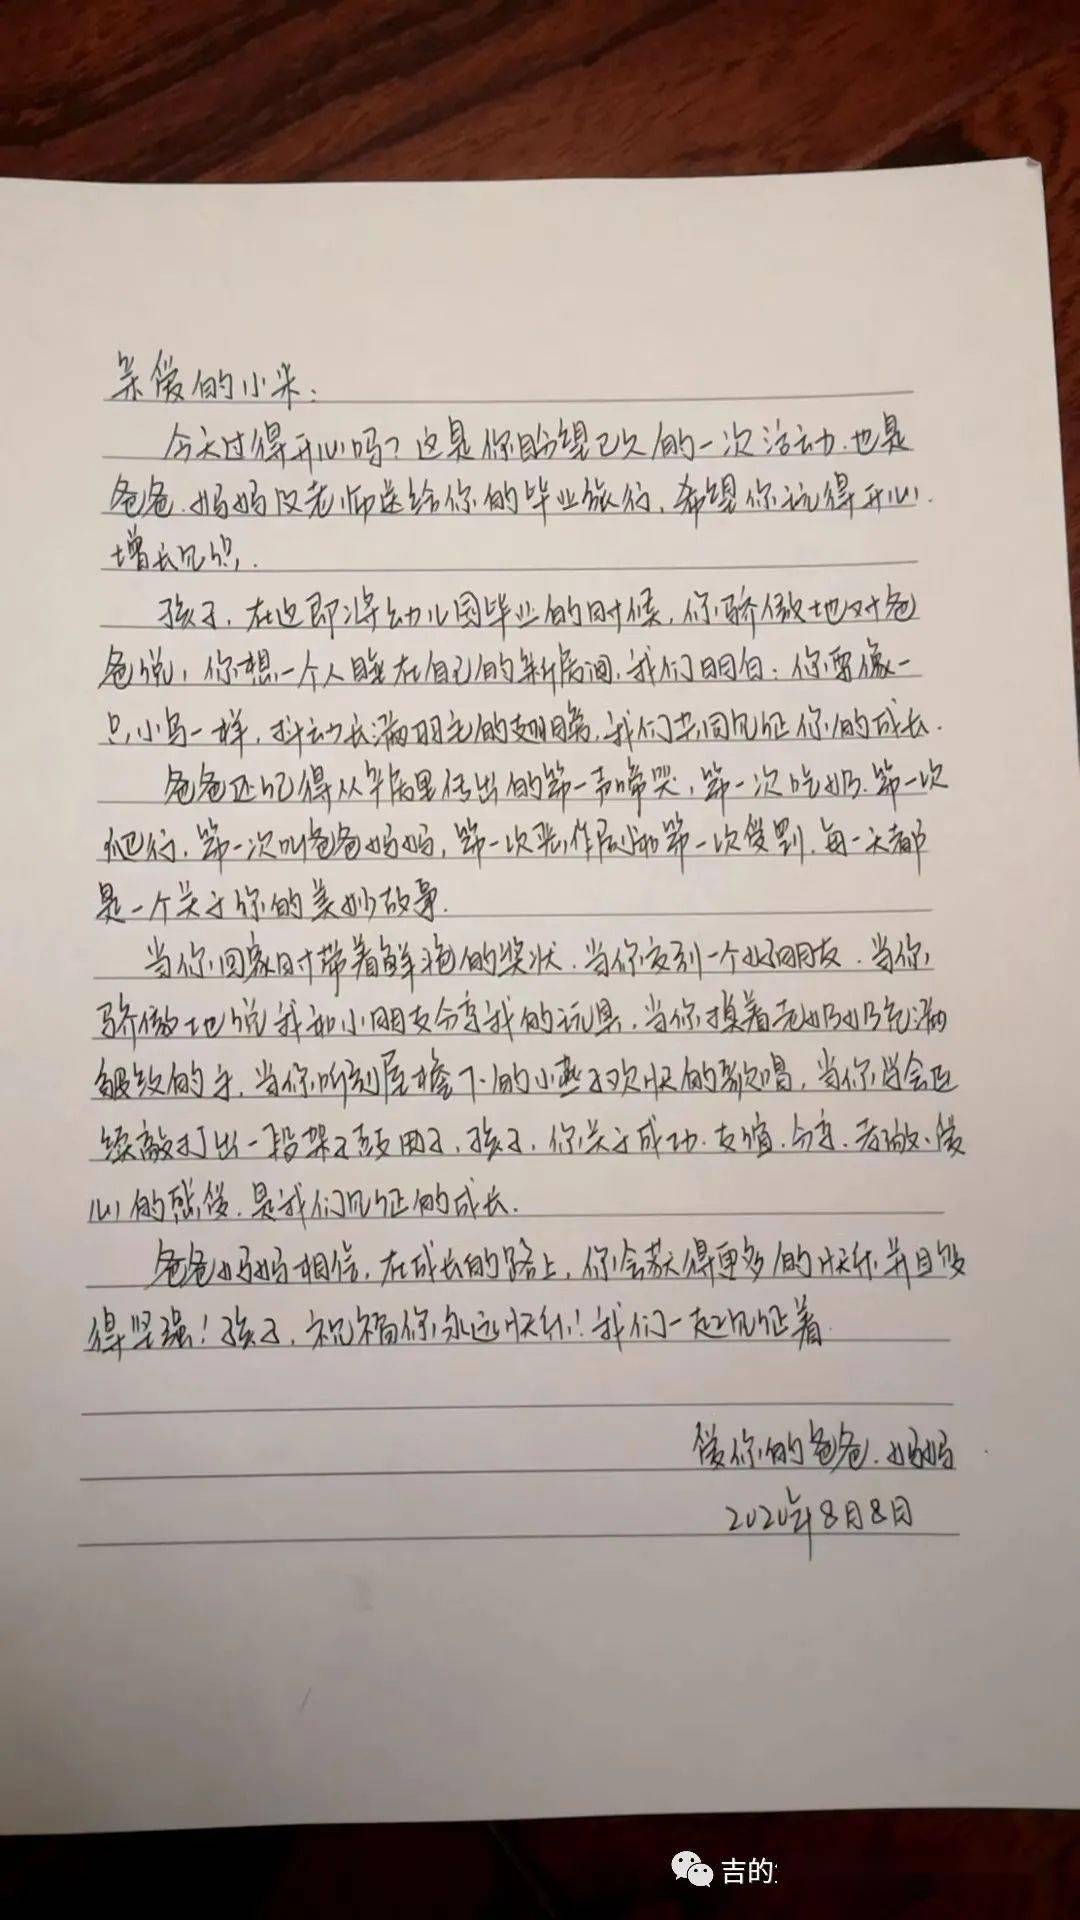 亲爱的小米：
今天过得开心吗？这是你盼望已久的一次活动.也是
爸爸.妈妈及老师送给你的毕业旅行，希望你玩得开心.
增长见识.
孩子，在这即将幼儿园毕业的时候，你骄傲地对爸
爸说，你想一个人睡在自己的新房间，我们明白：你要像一
只小鸟一样，抖动长满羽毛的翅膀，我们共同见证你的成长.
爸爸还记得从产房里传出的第一声啼哭，第一次吃奶.第一次
爬行，第一次叫爸爸妈妈，第一次恶作剧和第一次受罚.每一天都
是一个关于你的美妙故事.
当你回家时带着鲜艳的奖状.当你交到一个好朋友.当你
骄傲地说我和小朋友分享我的玩具，当你摸着老奶奶充满
皱纹的手，当你听到屋檐下的小燕子欢快的歌唱，当你学会连
续敲打出一段架子鼓 孩子，你关于成功.友谊.分享.孝敬.爱
心的感受.是我们见证的成长.
爸爸妈妈相信，在成长的路上，你会获得更多的快乐并且变
得坚强！孩子，祝福你永远快乐！我们一起见证着.
爱你的爸爸.妈妈
2020年8月8日
吉的